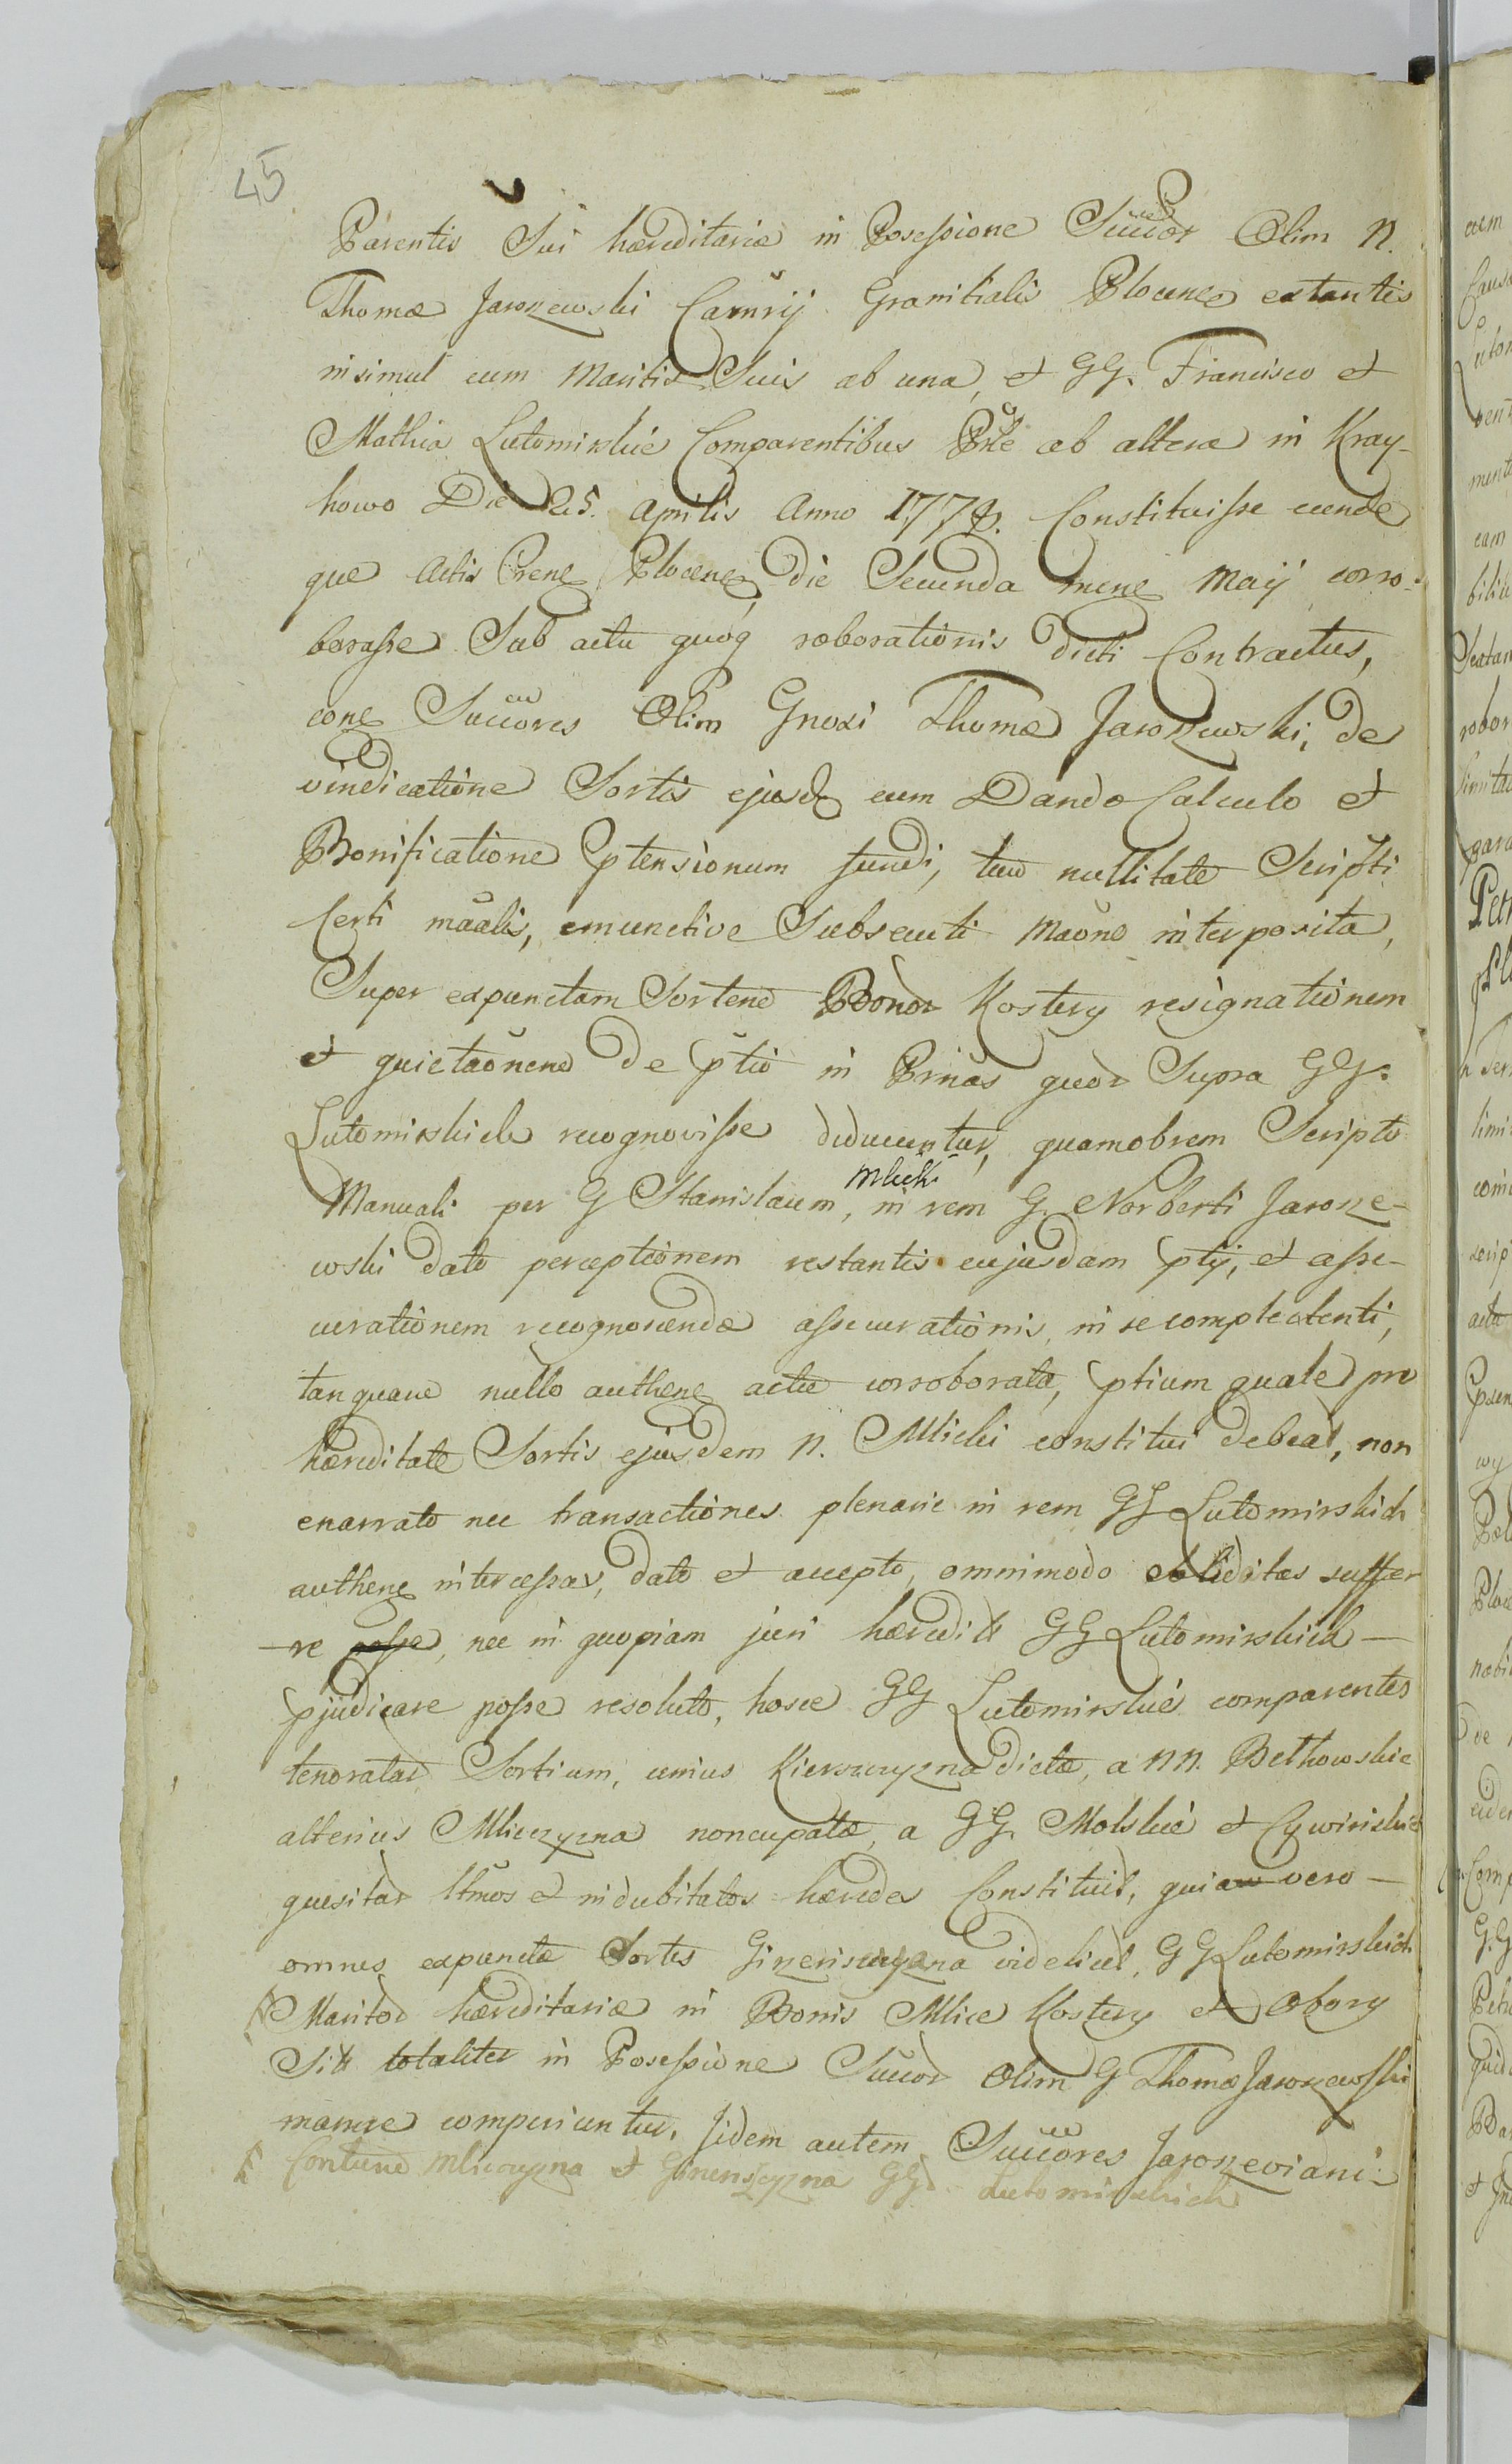 45
Parentis Sui hæreditariæ in Possessione Succor Olim N.
Thomæ Jaroszewski Camrij Granitialis Plocen extantis
insimul cum Maritis Suis ab una, et GG. Francisco et
Mathia Lutomirskie Comparentibus Pte ab altera in Kray-
kowo Die 25. Aprilis Anno 1778. Constituisse eunde
que Actis Cren Plocen die Secunda men Maij corro-
borasse Sub actu quoq roborationis dicti Contractus,
con Succores Olim Gnosi Thomæ Jaroszewski, de
vindicatione Sortis ejusd cum Dando Calculo et
Bonificatione ptensionum fundi, tum nullitate Scripti
Certi maalis, emunctive Subsecuti maone interposita,
Super expunctam Sortem Bonor Kostery resignationem
et quietaonem de ptio in Prinas quor Supra GG.
Lutomirskich recognovisse diducuntur, quamobrem Scripto
Mlicki
Manuali per G Stanislaum, in rem G. Norberti Jarosze-
wski dato perceptionem restantis cujusdam ptij, et asse-
curationem recognoscendæ assecurationis, in se complectenti,
tanquam nullo authen actu corroborata, ptium quale pro
hæreditate Sortis ejusdem N. Mlicki constitui debeat, non
enarrato nec transactiones plenarie in rem GG Lutomirskich
authen intercessas, dato et accepto, omnimodo suffer
re posse, nec in quopiam juri hæredit GG Lutomirskich
pjudicare posse resoluto, hosce GG Lutomirskie comparentes
tenoratar Sortium, unius Kierszczyzna dictæ, a NN. Bethowskie
alterius Mliczyzna noncupatæ, a GG. Molskie et Cywinskie
quesitar ltmos et indubitatos hæredes Constituit, quiam vero
omnes expunctæ Sortes Ginzensczyzna videlicet, GG Lutomirskich
Maritor hæreditariæ in Bonis Mlice Kostery et Obory
Sitt totaliter in Possessione Succor Olim G Thomæ Jaroszewski
manere comperiuntur, Iidem autem Succores Jaroszeviani
Contum Mliczyzna et Ginensczyzna GG. Lutomirskich